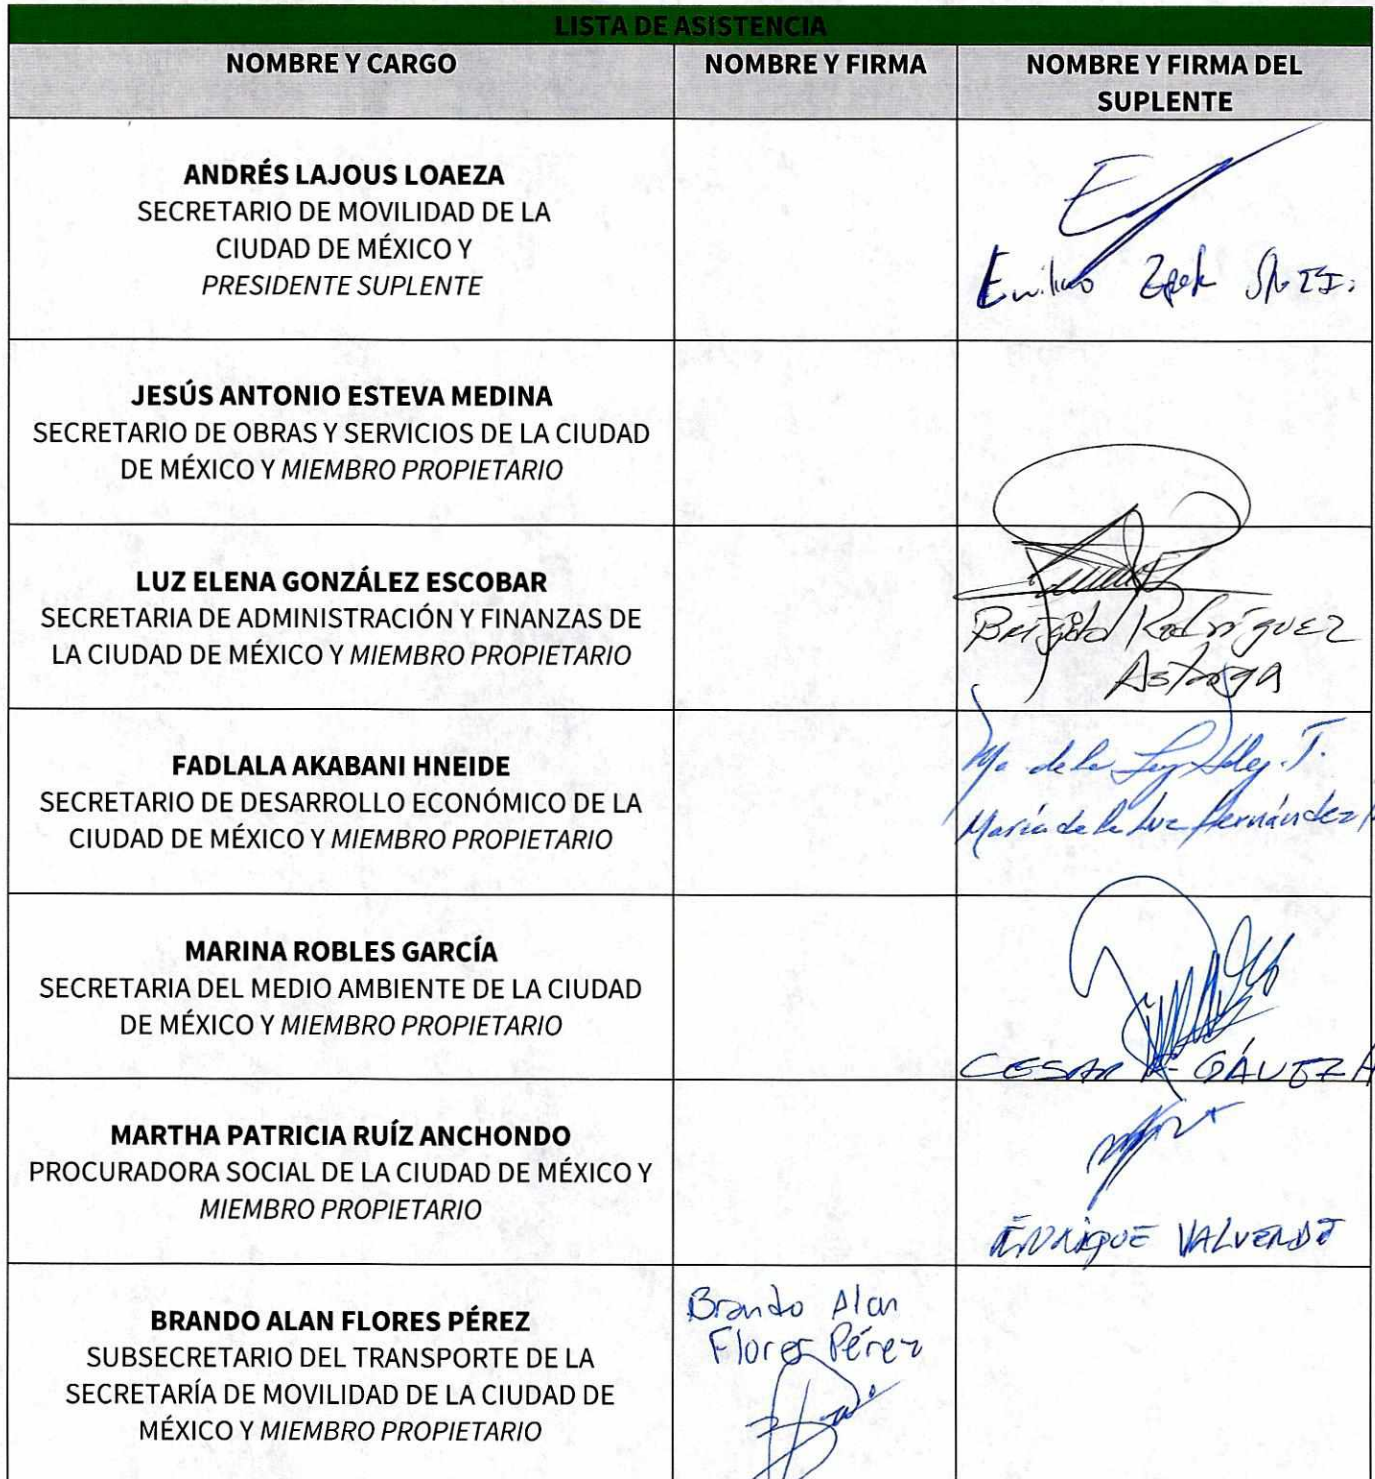 LISTA DE ASISTENCIA
NOMBRE Y CARGO
NOMBRE Y FIRMA
NOMBRE Y FIRMA DEL
SUPLENTE
ANDRÉS LAJOUS LOAEZA
SECRETARIO DE MOVILIDAD DE LA
CIUDAD DE MÉXICO Y
PRESIDENTE SUPLENTE
JESÚS ANTONIO ESTEVA MEDINA
SECRETARIO DE OBRAS Y SERVICIOS DE LA CIUDAD
DE MÉXICO Y MIEMBRO PROPIETARIO
LUZ ELENA GONZÁLEZ ESCOBAR
SECRETARIA DE ADMINISTRACIÓN Y FINANZAS DE
LA CIUDAD DE MÉXICO Y MIEMBRO PROPIETARIO
Rodríguez
Astorga
FADLALA AKABANI HNEIDE
SECRETARIO DE DESARROLLO ECONÓMICO DE LA
CIUDAD DE MÉXICO Y MIEMBRO PROPIETARIO
Ma de la Luz
María de la Luz Hernández
MARINA ROBLES GARCÍA
SECRETARIA DEL MEDIO AMBIENTE DE LA CIUDAD
DE MÉXICO Y MIEMBRO PROPIETARIO
CESAR
MARTHA PATRICIA RUÍZ ANCHONDO
PROCURADORA SOCIAL DE LA CIUDAD DE MÉXICO Y
MIEMBRO PROPIETARIO
ENRIQUE VALVERDE
BRANDO ALAN FLORES PÉREZ
SUBSECRETARIO DEL TRANSPORTE DE LA
SECRETARÍA DE MOVILIDAD DE LA CIUDAD DE
MÉXICO Y MIEMBRO PROPIETARIO
Brando Alan
Flores Pérez